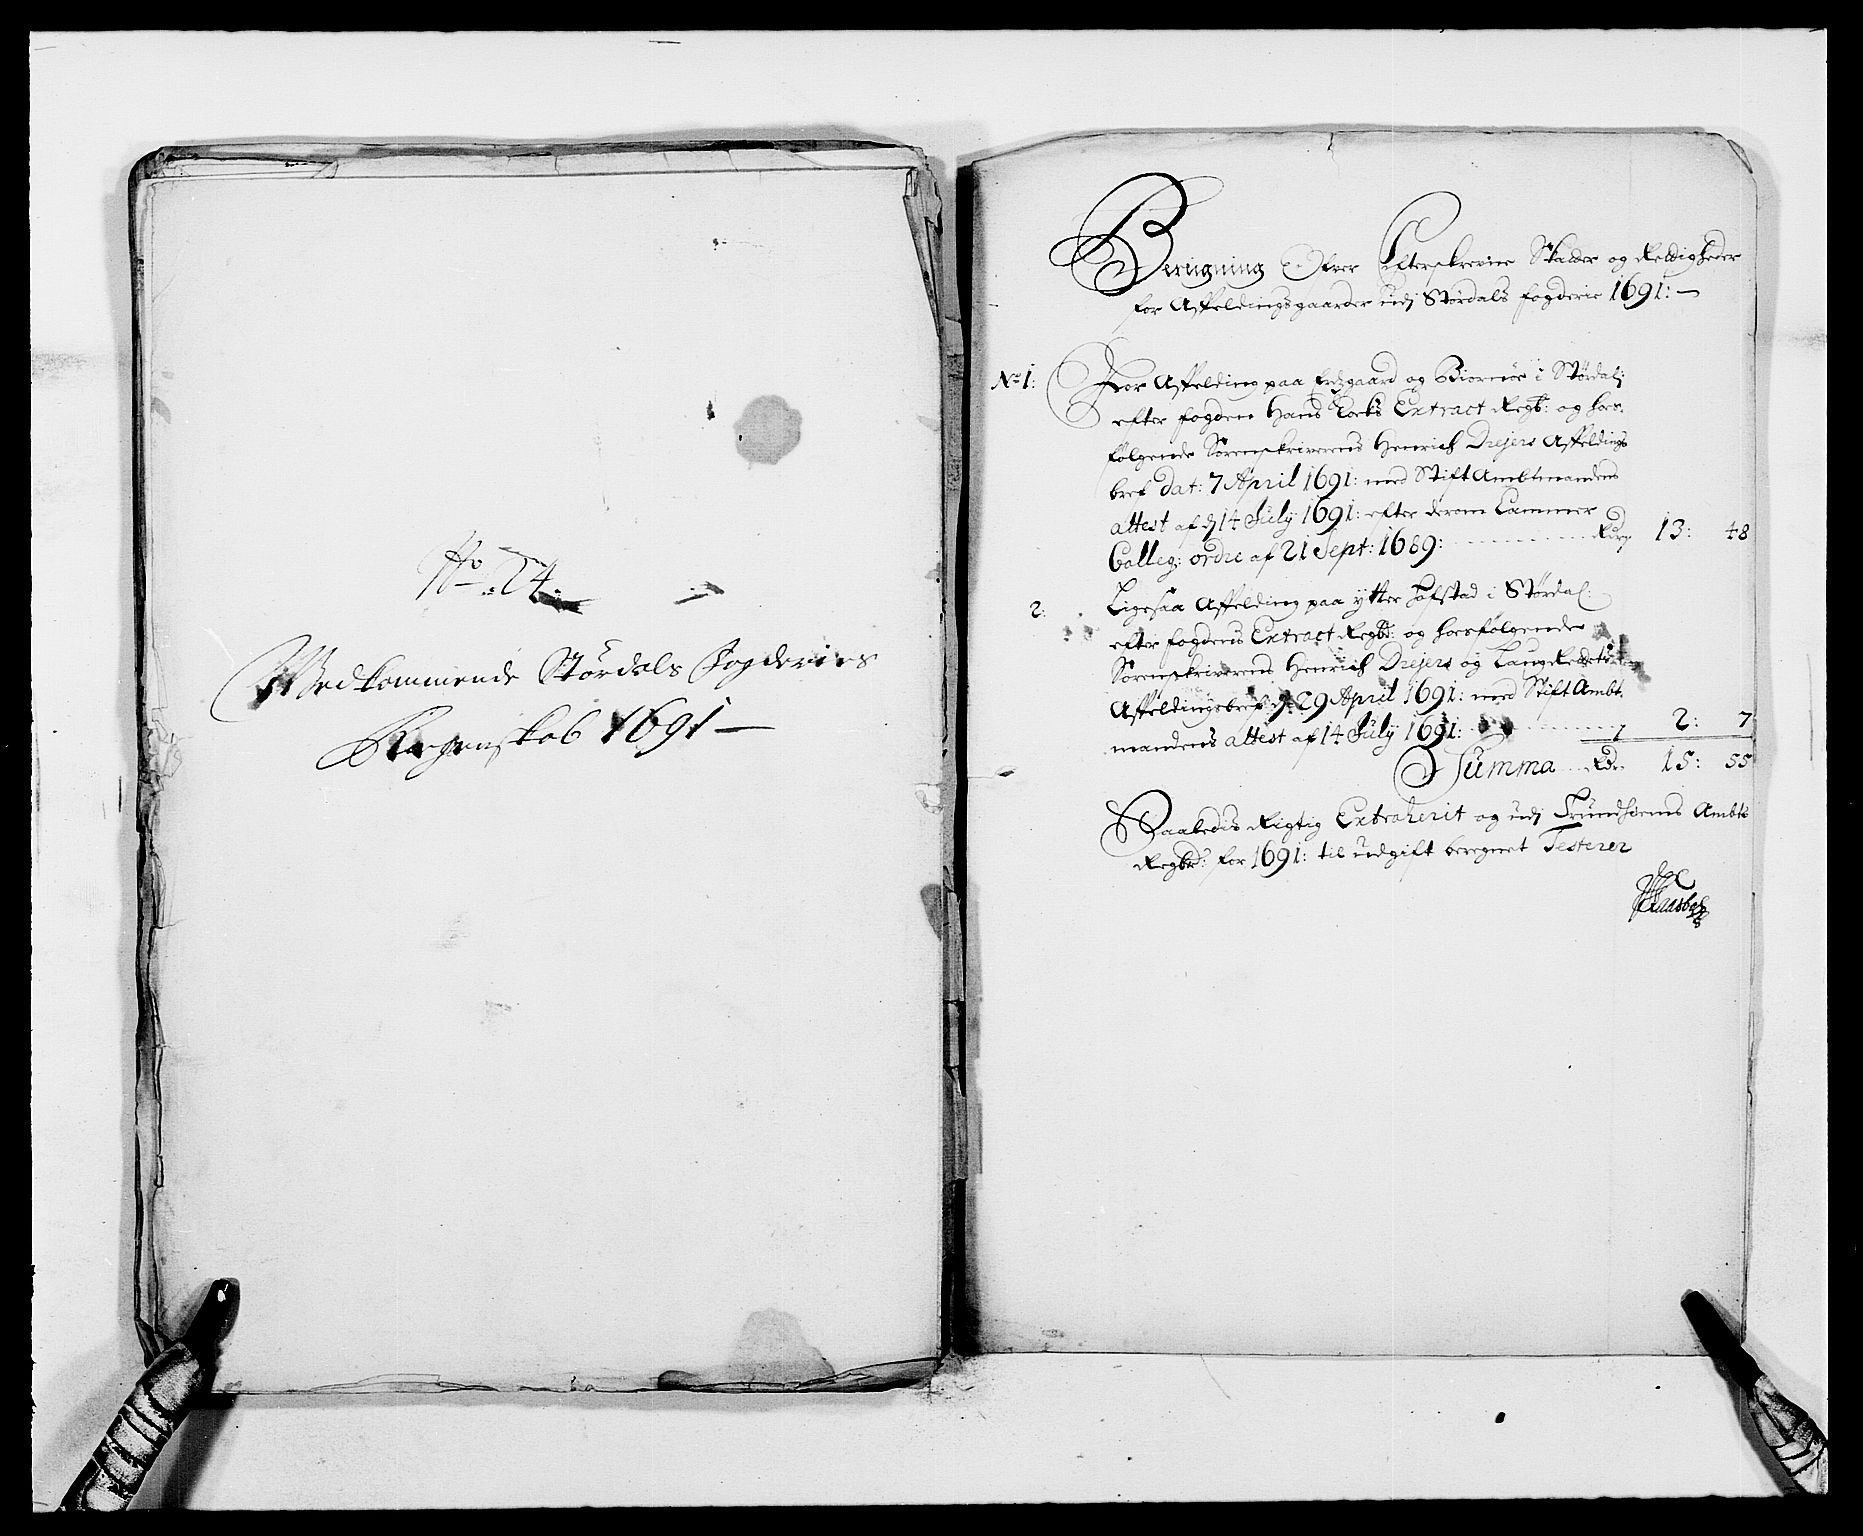 No: 24.
Vedkommende Størdals Fogderies
Regenskab 1691 —
Beregning Ofver Efterskrevne Skatter og Reldigheder
for Affeldingsgaarder udj Størdals fogderie 1691: —
No 1: For Affelding paa Erdzgaard og Biørnør i Størdal:
efter fogden Hans Extract Regb: og hos-
følgende Sørenskriverens Henrich Drejers Affeldings
bref dat: 7 April 1691: med Stift Ambtmandens
attest af d 14 July 1691: efter derom Cammer
Colleg: ordre af 21 Sept: 1689: Rdr 13: 48
2: Ligesaa Affelding paa ytter Hofstad i Størdal:
efter fogdens Extract Regb: og hosfølgende
Sørenskriverens Henrich Drejers og Laugrettets
Affeldingsbref d: 29 April 1691: med Stift Ambt-
mandens attest af 14 July 1691: 2: 7
Summa Rdr 15: 55
Saaledis Rigtig Extraherit og udj Trundhiems Ambts
Regb: for 1691: til udgift beregnet Testerer